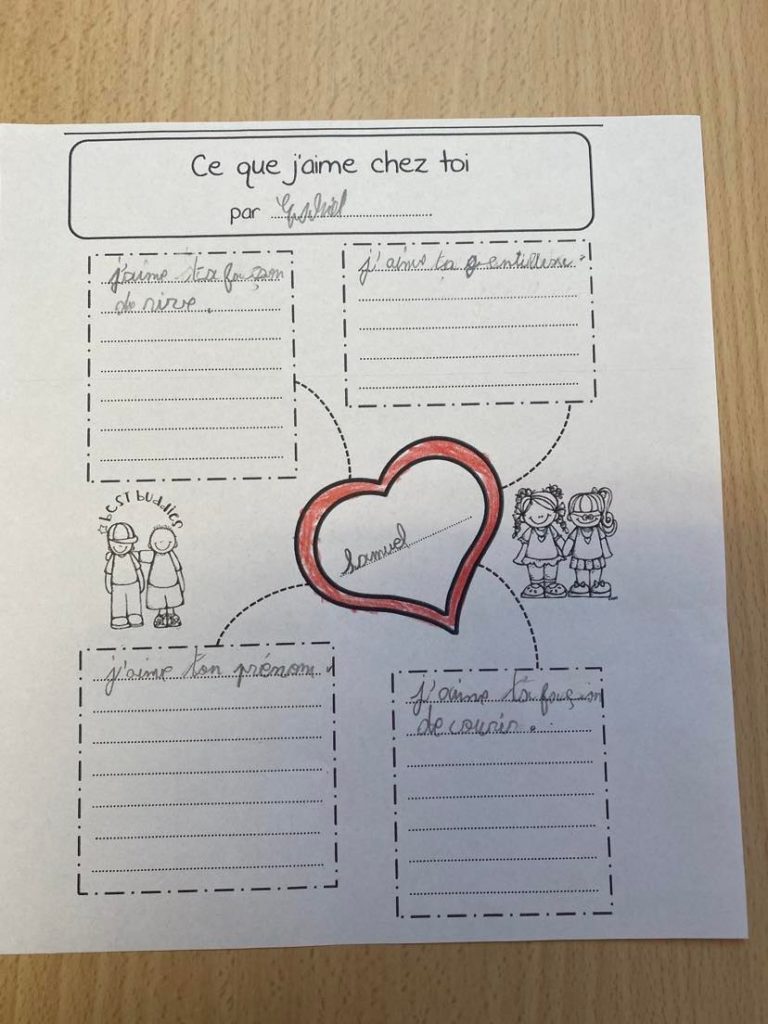 Ce que j'aime chez toi
par
j'aime ta façon
de rire.
j'aime ta gentillesse.
best buddies
Samuel
j'aime ton prénom.
j'aime ta façon
de courir.